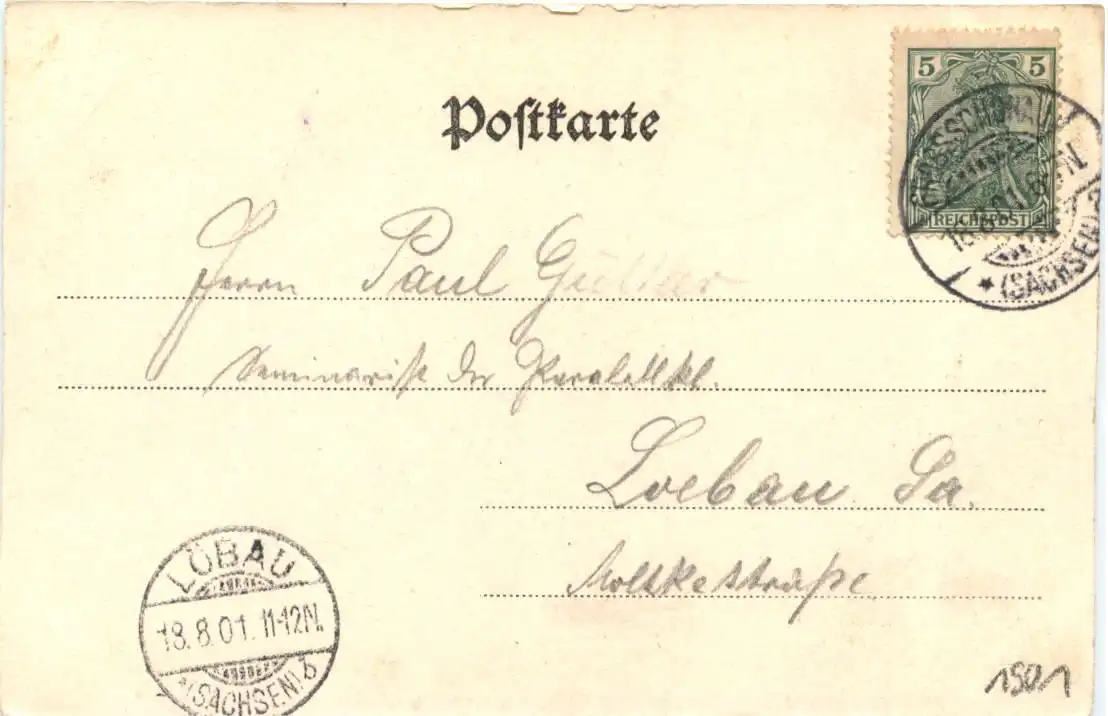 Postkarte
5 5
REICHSPOST
GROSSSCHÖNAU
18.8.01. N.
*(SACHSEN)
Herrn Paul
Seminarist der Parallelkl.
Loebau Sa.
Moltkestraße
LÖBAU
18.8.01. 11-12N.
*(SACHSEN) b
1501